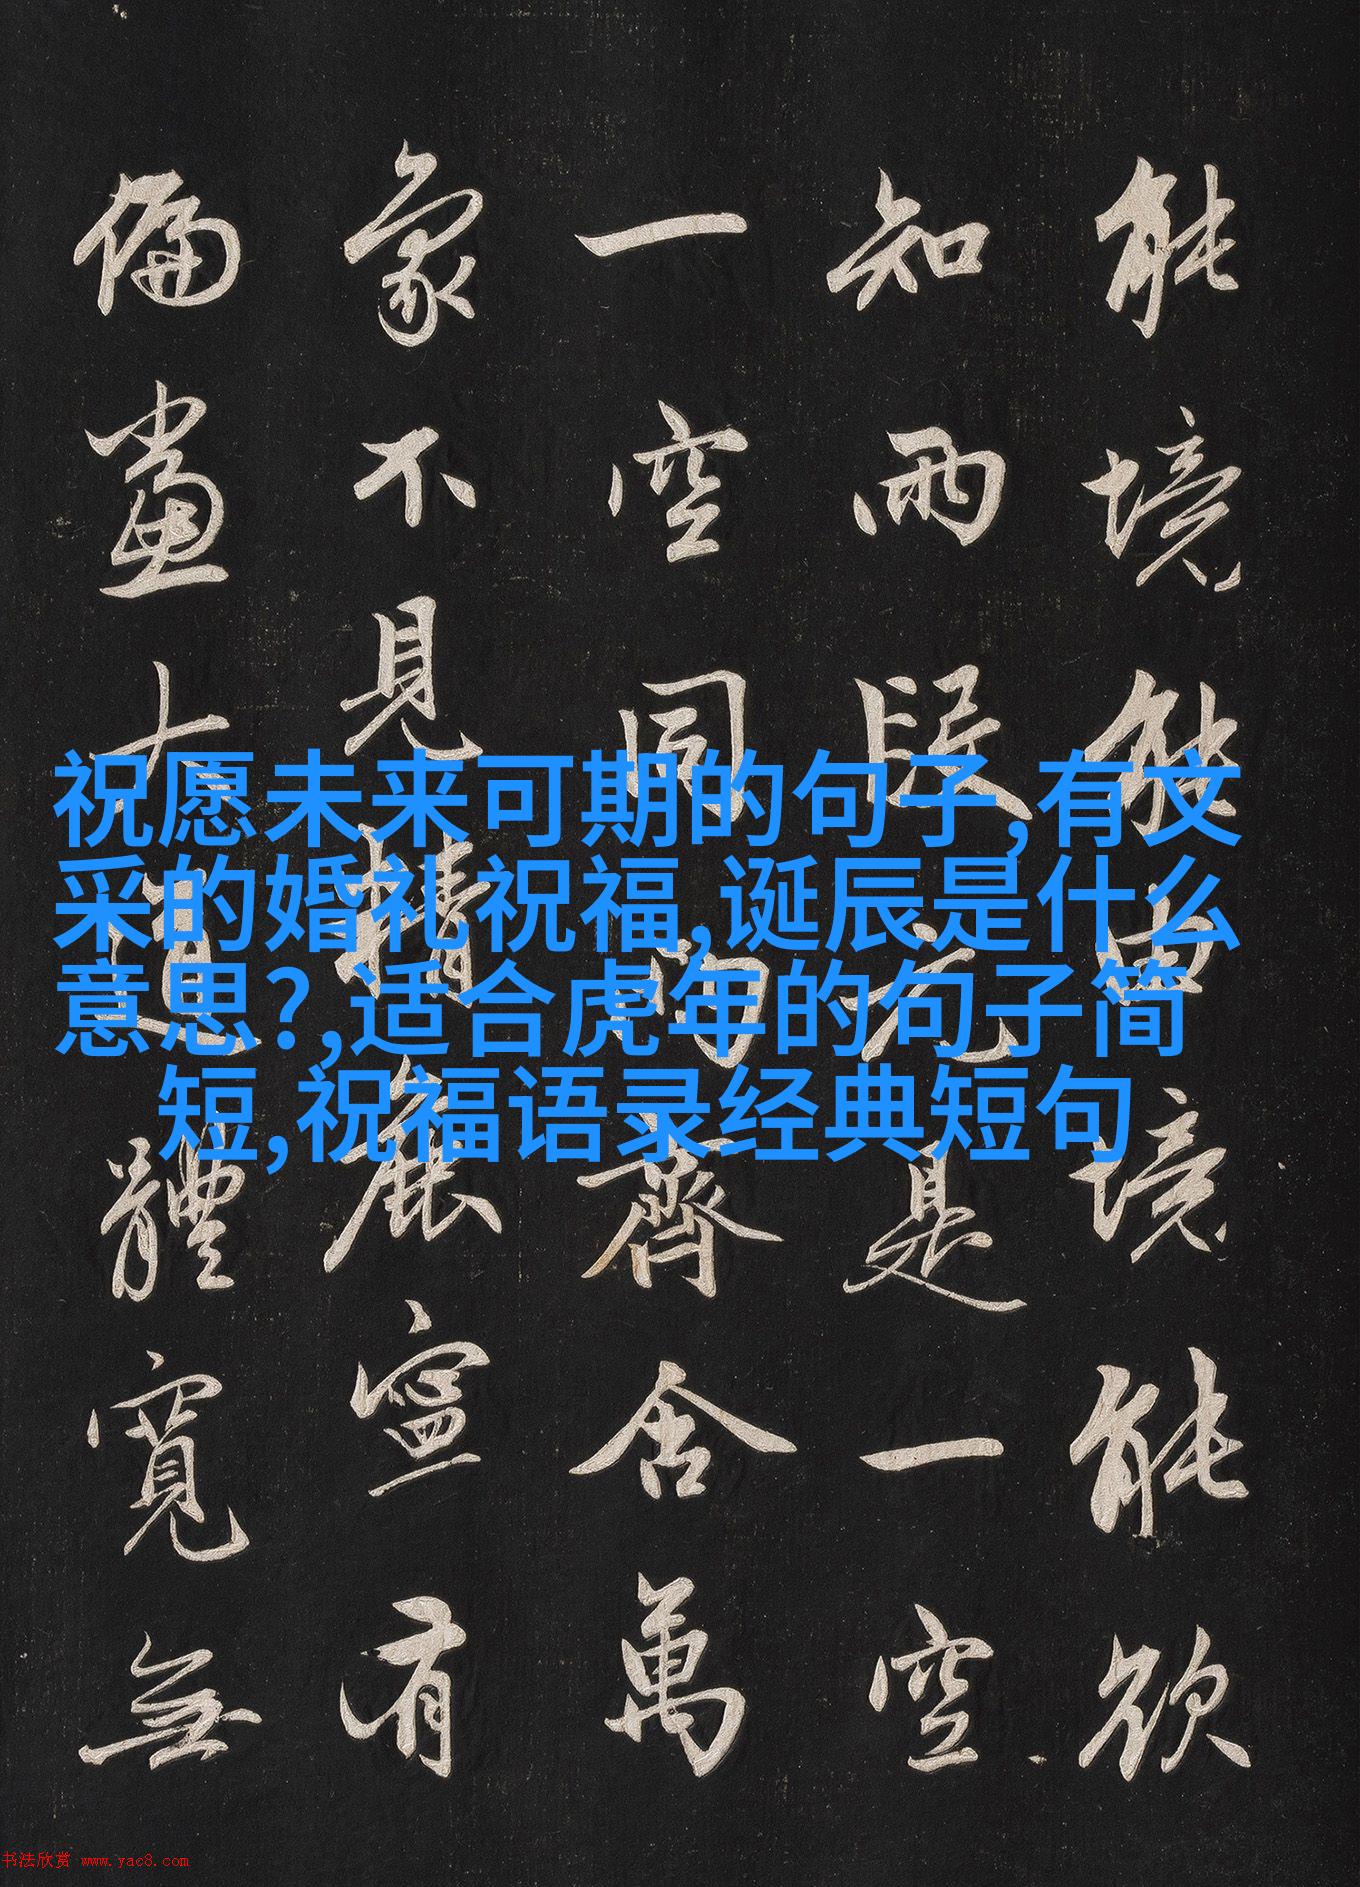 能境能由境能欲
知兩段元是一空
一空同兩齊含萬
象不見精麤寧有
偏黨大道體寬無
祝愿未来可期的句子,有文
采的婚礼祝福,诞辰是什么
意思?,适合虎年的句子简
短,祝福语录经典短句
书法欣赏 www.yac8.com